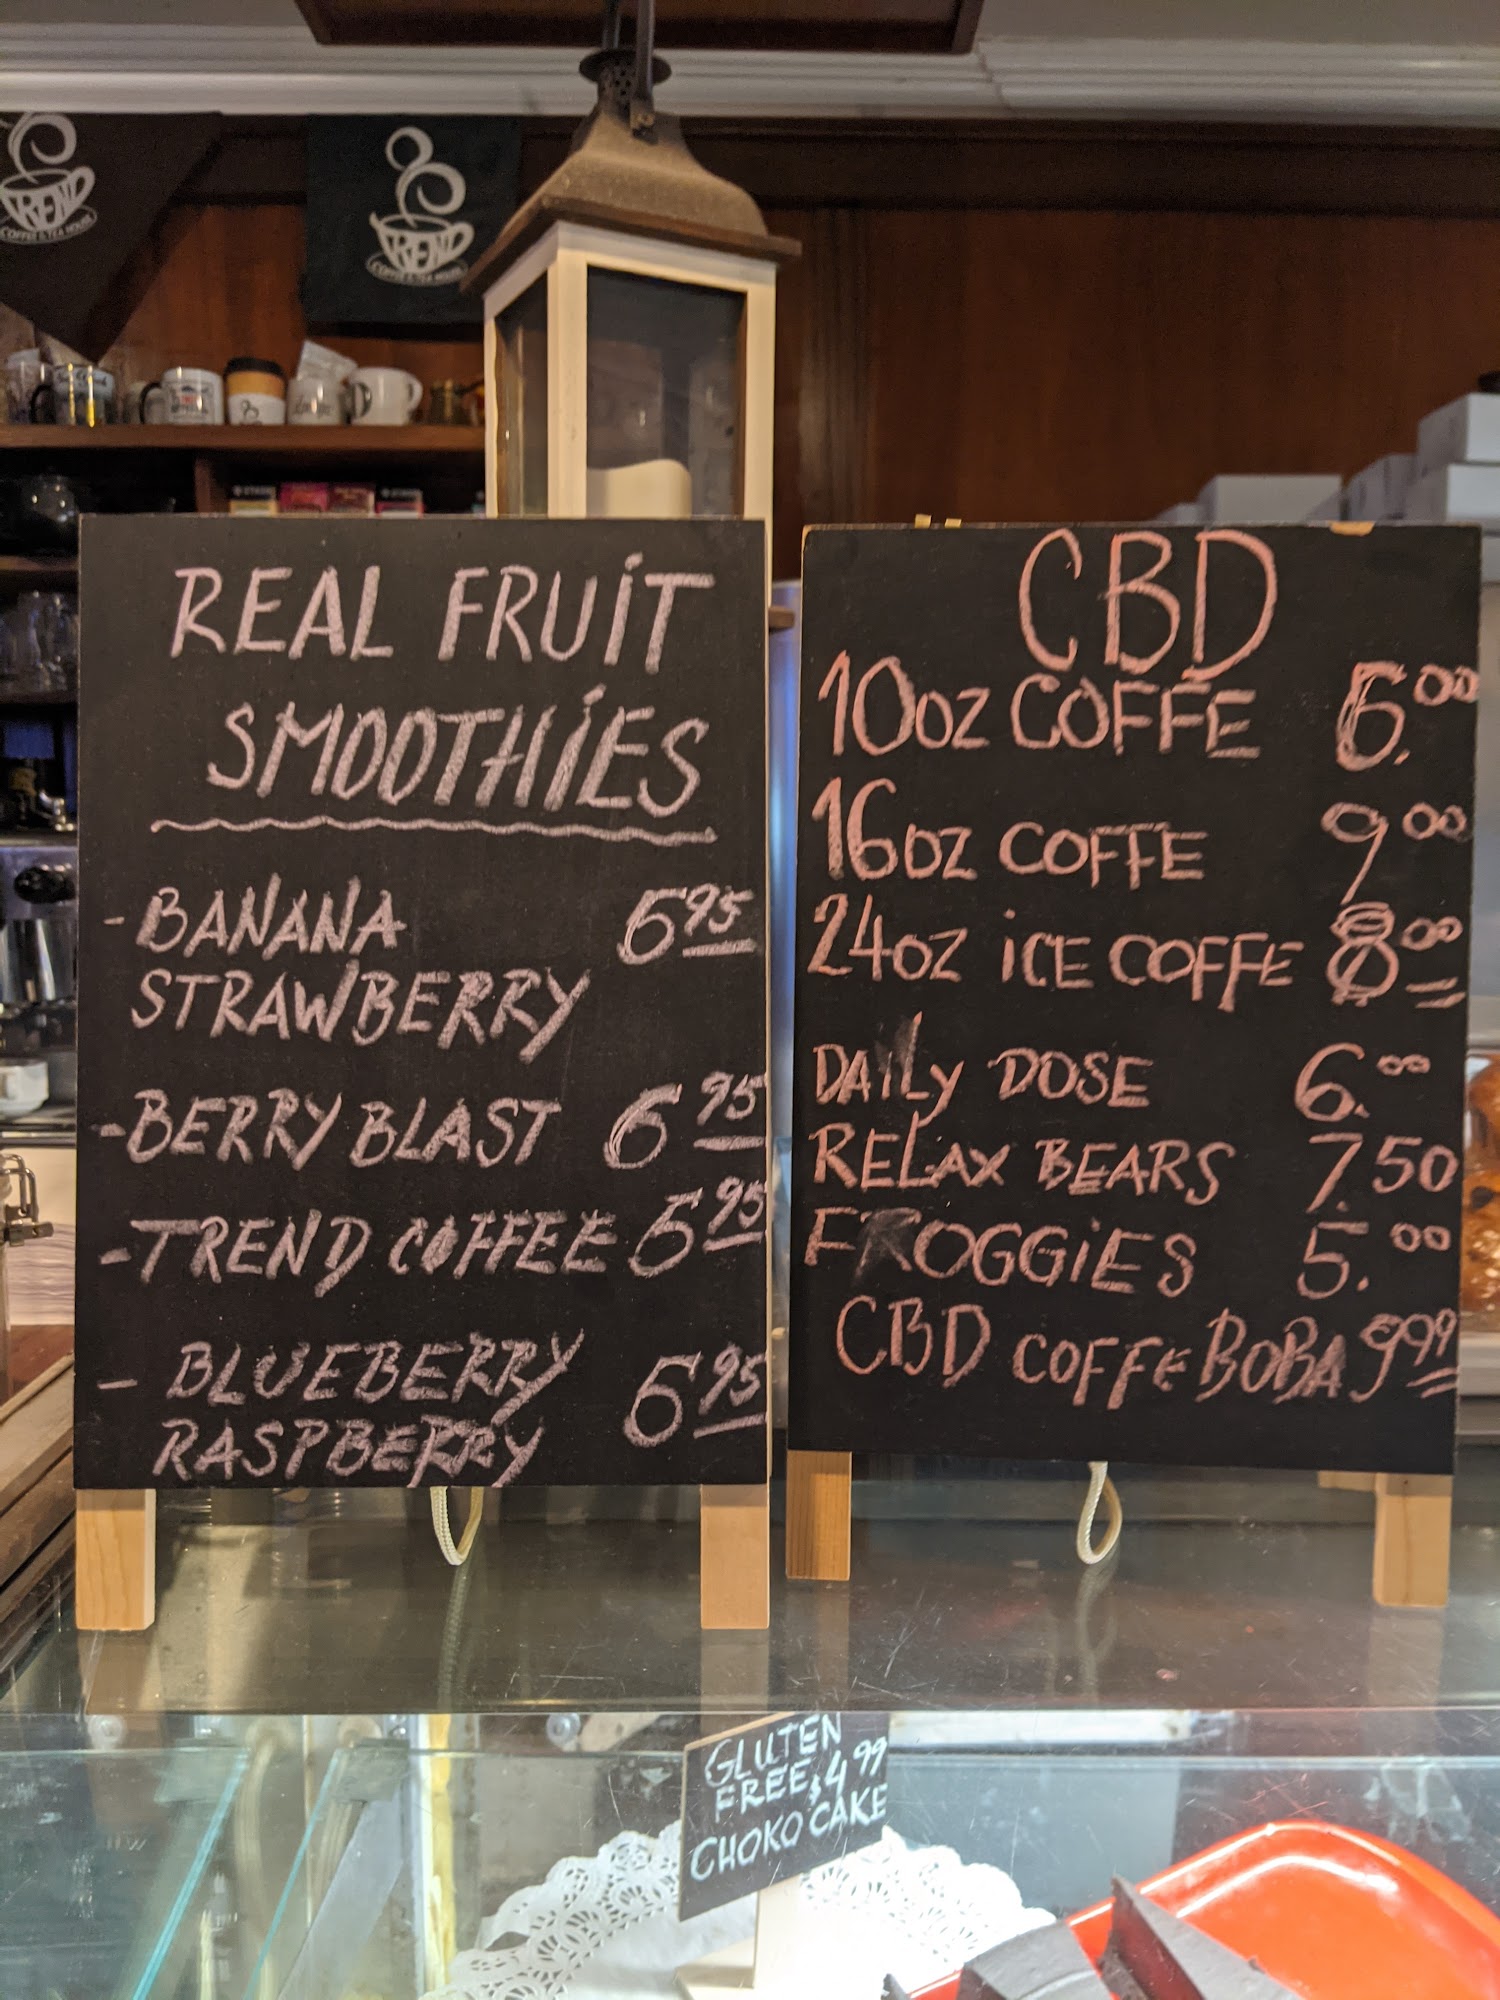 TREND
COFFEE & TEA HOUSE
TREND
COFFEE & TEA HOUSE
REAL FRUIT
SMOOTHIES
- BANANA 6 95
STRAWBERRY
- BERRY BLAST 6 95
- TREND COFFEE 6 95
- BLUEBERRY 6 95
RASPBERRY
CBD
10OZ COFFE 6.00
16OZ COFFE 9 00
24OZ ICE COFFE 8 00
DAILY DOSE 6.00
RELAX BEARS 7.50
FROGGIES 5.00
CBD COFFE BOBA 9 99
GLUTEN
FREE $4 99
CHOKO CAKE